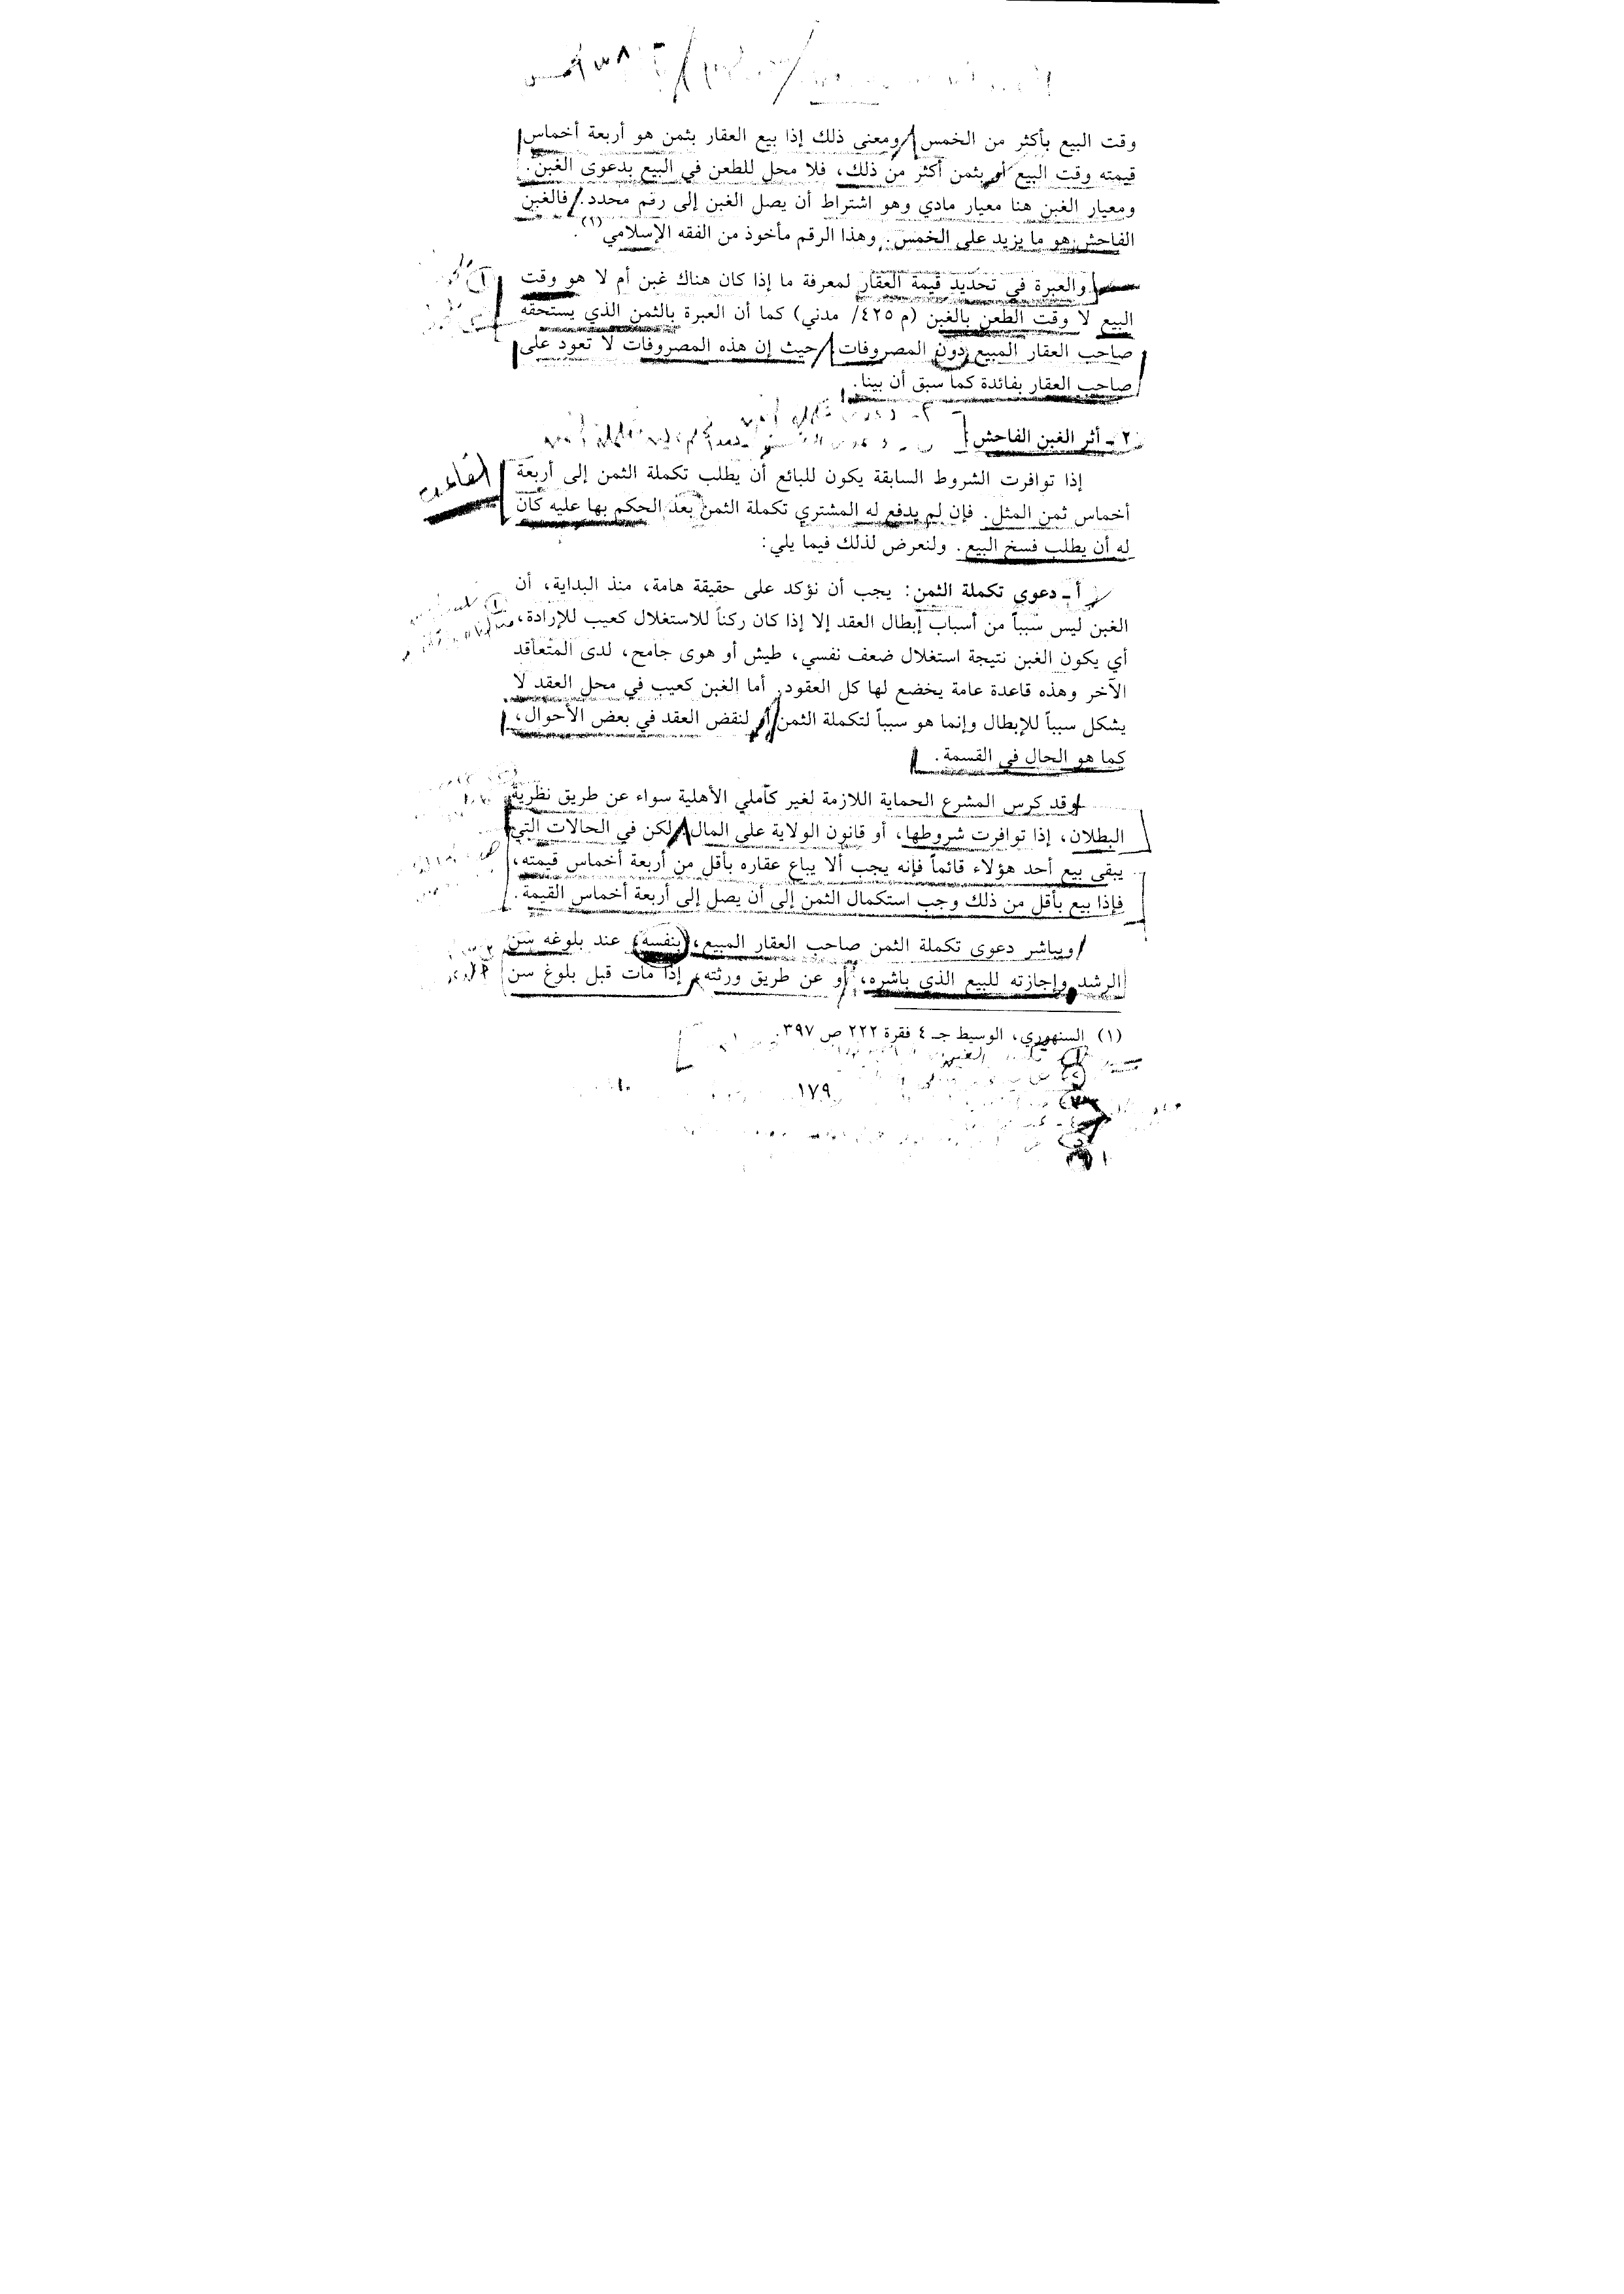 وقت البيع بأكثر من الخمس ومعنى ذلك إذا بيع العقار بثمن هو أربعة أخماس
قيمته وقت البيع أو بثمن أكثر من ذلك، فلا محل للطعن في البيع بدعوى الغبن.
ومعيار الغبن هنا معيار مادي وهو اشتراط أن يصل الغبن إلى رقم محدد. فالغبن
الفاحش هو ما يزيد على الخمس. وهذا الرقم مأخوذ من الفقه الإسلامي(١).
والعبرة في تحديد قيمة العقار لمعرفة ما إذا كان هناك غبن أم لا هو وقت
البيع لا وقت الطعن بالغبن (م ٤٢٥/ مدني) كما أن العبرة بالثمن الذي يستحقه
صاحب العقار المبيع دون المصروفات حيث إن هذه المصروفات لا تعود على
صاحب العقار بفائدة كما سبق أن بينا.
٢ـ أثر الغبن الفاحش
إذا توافرت الشروط السابقة يكون للبائع أن يطلب تكملة الثمن إلى أربعة
أخماس ثمن المثل. فإن لم يدفع له المشتري تكملة الثمن بعد الحكم بها عليه كان
له أن يطلب فسخ البيع. ولنعرض لذلك فيما يلي:
أ ـ دعوى تكملة الثمن: يجب أن نؤكد على حقيقة هامة، منذ البداية، أن
الغبن ليس سبباً من أسباب إبطال العقد إلا إذا كان ركناً للاستغلال كعيب للإرادة،
أي يكون الغبن نتيجة استغلال ضعف نفسي، طيش أو هوى جامح، لدى المتعاقد
الآخر وهذه قاعدة عامة يخضع لها كل العقود. أما الغبن كعيب في محل العقد لا
يشكل سبباً للإبطال وإنما هو سبباً لتكملة الثمن أو لنقض العقد في بعض الأحوال،
كما هو الحال في القسمة.
وقد كرس المشرع الحماية اللازمة لغير كاملي الأهلية سواء عن طريق نظرية
البطلان، إذا توافرت شروطها، أو قانون الولاية على المال ولكن في الحالات التي
يبقى بيع أحد هؤلاء قائماً فإنه يجب ألا يباع عقاره بأقل من أربعة أخماس قيمته،
فإذا بيع بأقل من ذلك وجب استكمال الثمن إلى أن يصل إلى أربعة أخماس القيمة.
ويباشر دعوى تكملة الثمن صاحب العقار المبيع، بنفسه، عند بلوغه سن
الرشد وإجازته للبيع الذي باشره، أو عن طريق ورثته، إذا مات قبل بلوغ سن
(١) السنهوري، الوسيط جـ ٤ فقرة ٢٢٢ ص ٣٩٧.
١٧٩